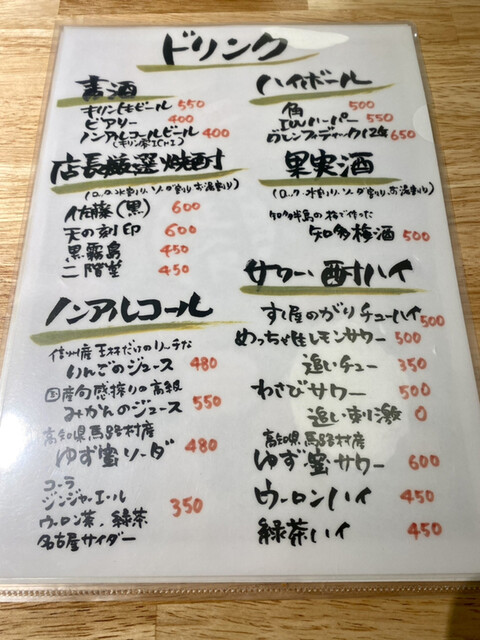 ドリンク
麦酒
キリン生ビール 550
ビアリー 400
ノンアルコールビール 400
(キリン零ICHI)
店長厳選焼酎
(ロック.水割り.ソーダ割り.お湯割り)
佐藤(黒) 600
天の刻印 600
黒霧島 450
二階堂 450
ノンアルコール
信州産 王林だけのリッチな
りんごのジュース 480
国産旬感搾りの高級
みかんのジュース 550
高知県馬路村産
ゆず蜜ソーダ 480
コーラ
ジンジャーエール
ウーロン茶、緑茶 350
名古屋サイダー
ハイボール
角 500
I.Wハーパー 550
グレンフィディック12年 650
果実酒
(ロック.水割り.ソーダ割り.お湯割り)
知多半島の梅で作った
知多梅酒 500
サワー、酎ハイ
すし屋のがりチューハイ 500
めっちゃ生レモンサワー 500
追いチュー 350
わさびサワー 500
追い刺激 0
高知県馬路村産
ゆず蜜サワー 600
ウーロンハイ 450
緑茶ハイ 450